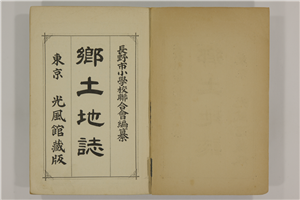 長野市小學校聯合會編纂
鄕土地誌
東京 光風館藏版